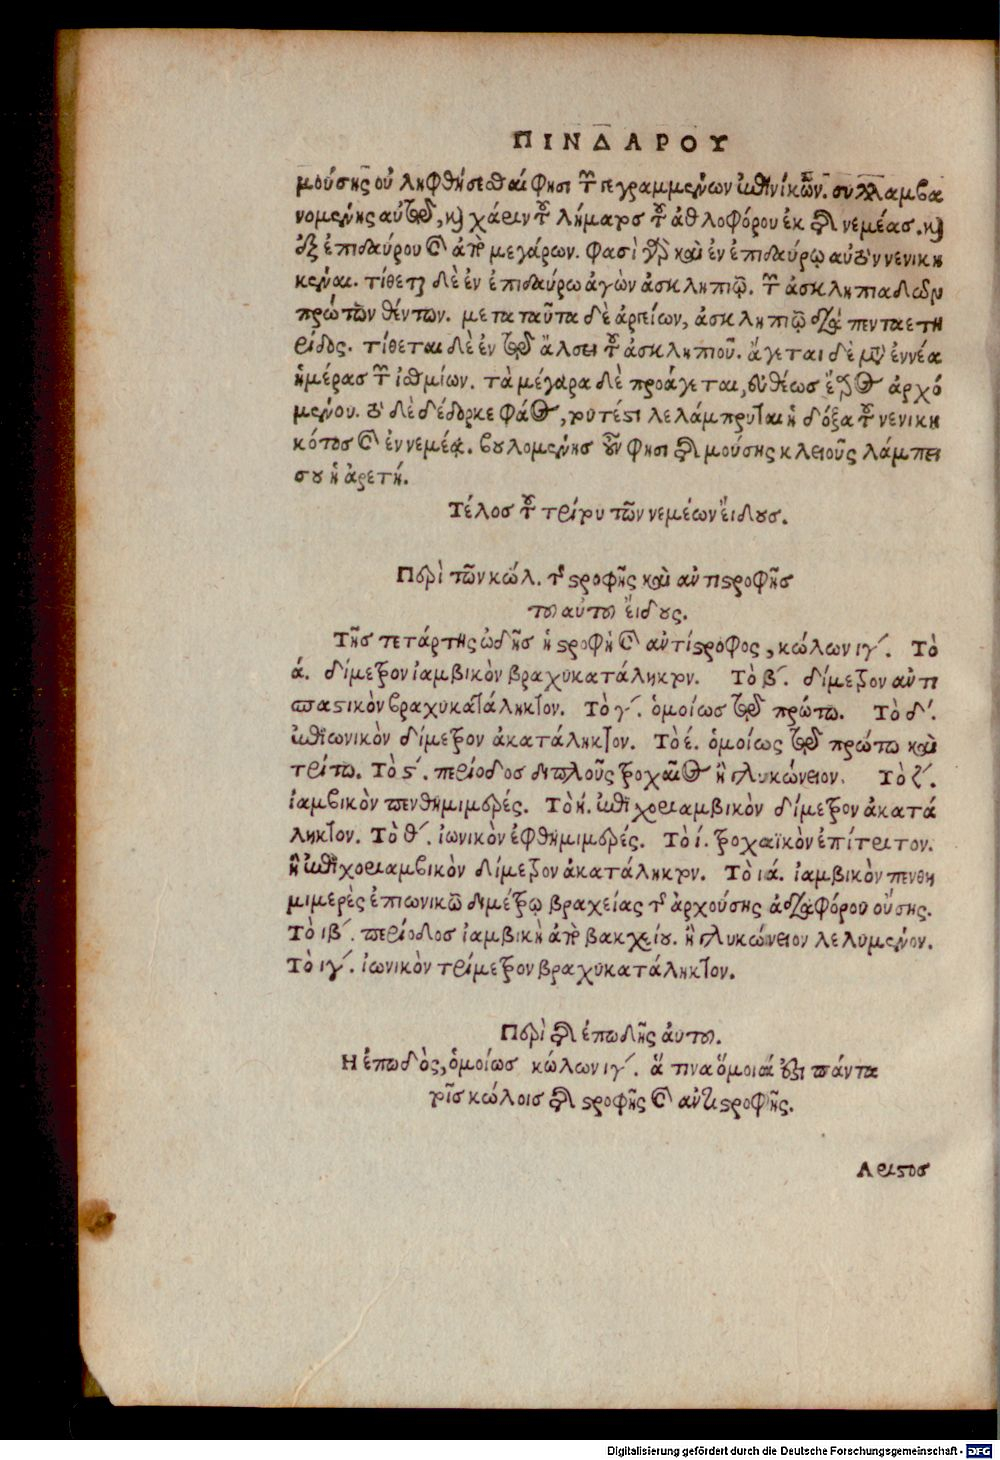 ΠΙΝΔΑΡΟΥ
μούσης οὐ ληφθήσεσθαί φησι τῶν γεγραμμένων ἐπινίκων. συλλαμβα
νομένης αὐτῷ, καὶ χάριν τοῦ λήματος τοῦ ἀθλοφόρου ἐκ τῆς νεμέας. καὶ
ἐξ ἐπιδαύρου καὶ ἀπὸ μεγάρων. φασὶ γὰρ καὶ ἐν ἐπιδαύρῳ αὐτὸν νενικη
κέναι. τίθεται δὲ ἐν ἐπιδαύρω ἀγὼν ἀσκληπιῷ. τῶν ἀσκληπιαδῶν
πρώτων θέντων. μετα ταῦτα δὲ ἀργείων, ἀσκληπιῷ διὰ πενταετη
ρίδος. τίθεται δὲ ἐν τῷ ἄλσει τοῦ ἀσκληπιοῦ. ἄγεται δὲ μετὰ ἐννέα
ἡμέρας τῶν ἰσθμίων. τὰ μέγαρα δὲ προάγεται, εὐθέως ἔαρος ἀρχό
μένου. τὸ δὲ δέδορκε φάος, τουτέστι λελάμπρυνται ἡ δόξα τοῦ νενικη
κότος καὶ ἐν νεμέᾳ. βουλομένης οὖν φησι τῆς μούσης κλειοῦς λάμπει
σου ἡ ἀρετή.
Τέλος τοῦ τρίτου τῶν νεμέων εἴδους.
Περὶ τῶν κώλ. τῆς στροφῆς καὶ αντιστροφῆς
του αὐτου εἴδους.
Τῆς τετάρτης ὠδῆς ἡ στροφὴ καὶ αντίστροφος, κώλων ιγ´. Τὸ
ά. δίμετρον ἰαμβικὸν βραχυκατάληκτον. Τὸ β´. δίμετρον αὐτι
σπαστικὸν βραχυκατάληκτον. Τὸ γ´. ὁμοίως τῷ πρώτω. Τὸ δ´.
ἐπιωνικὸν δίμετρον ἀκατάληκτον. Τὸ έ. ὁμοίως τῷ πρώτω καὶ
τρίτω. Τὸ ϛ´. περίοδος διπλοῦς τροχαϊος ἢ γλυκώνειον. Τὸ ζ´.
ἰαμβικὸν πενθημιμερές. Τὸ ή. ἐπιχοριαμβικὸν δίμετρον ἀκατά
ληκτον. Τὸ θ´. ἰωνικὸν ἑφθημιμερές. Τὸ ί. τροχαϊκὸν ἐπίτριτον.
ἢ ἐπιχοριαμβικὸν δίμετρον ἀκατάληκτον. Τὸ ιά. ἰαμβικὸν πενθη
μιμερὲς ἐπιωνικῶ διμέτρῳ βραχείας τῆς ἀρχούσης ἀδιαφόρου οὔσης.
Τὸ ιβ´. περίοδος ἰαμβικὴ ἀπὸ βακχείου. ἢ γλυκώνειον λελυμένον.
Τὸ ιγ´. ἰωνικὸν τρίμετρον βραχυκατάληκτον.
Περὶ τῆς ἐπωδῆς ἀυτου.
Η ἐπωδὸς, ὁμοίως κώλων ιγ´. ἅ τινα ὅμοιά ἐστι πάντα
τοῖς κώλοις τῆς στροφῆς καὶ αντιστροφῆς.
Αριστος
Digitalisierung gefördert durch die Deutsche Forschungsgemeinschaft - DFG